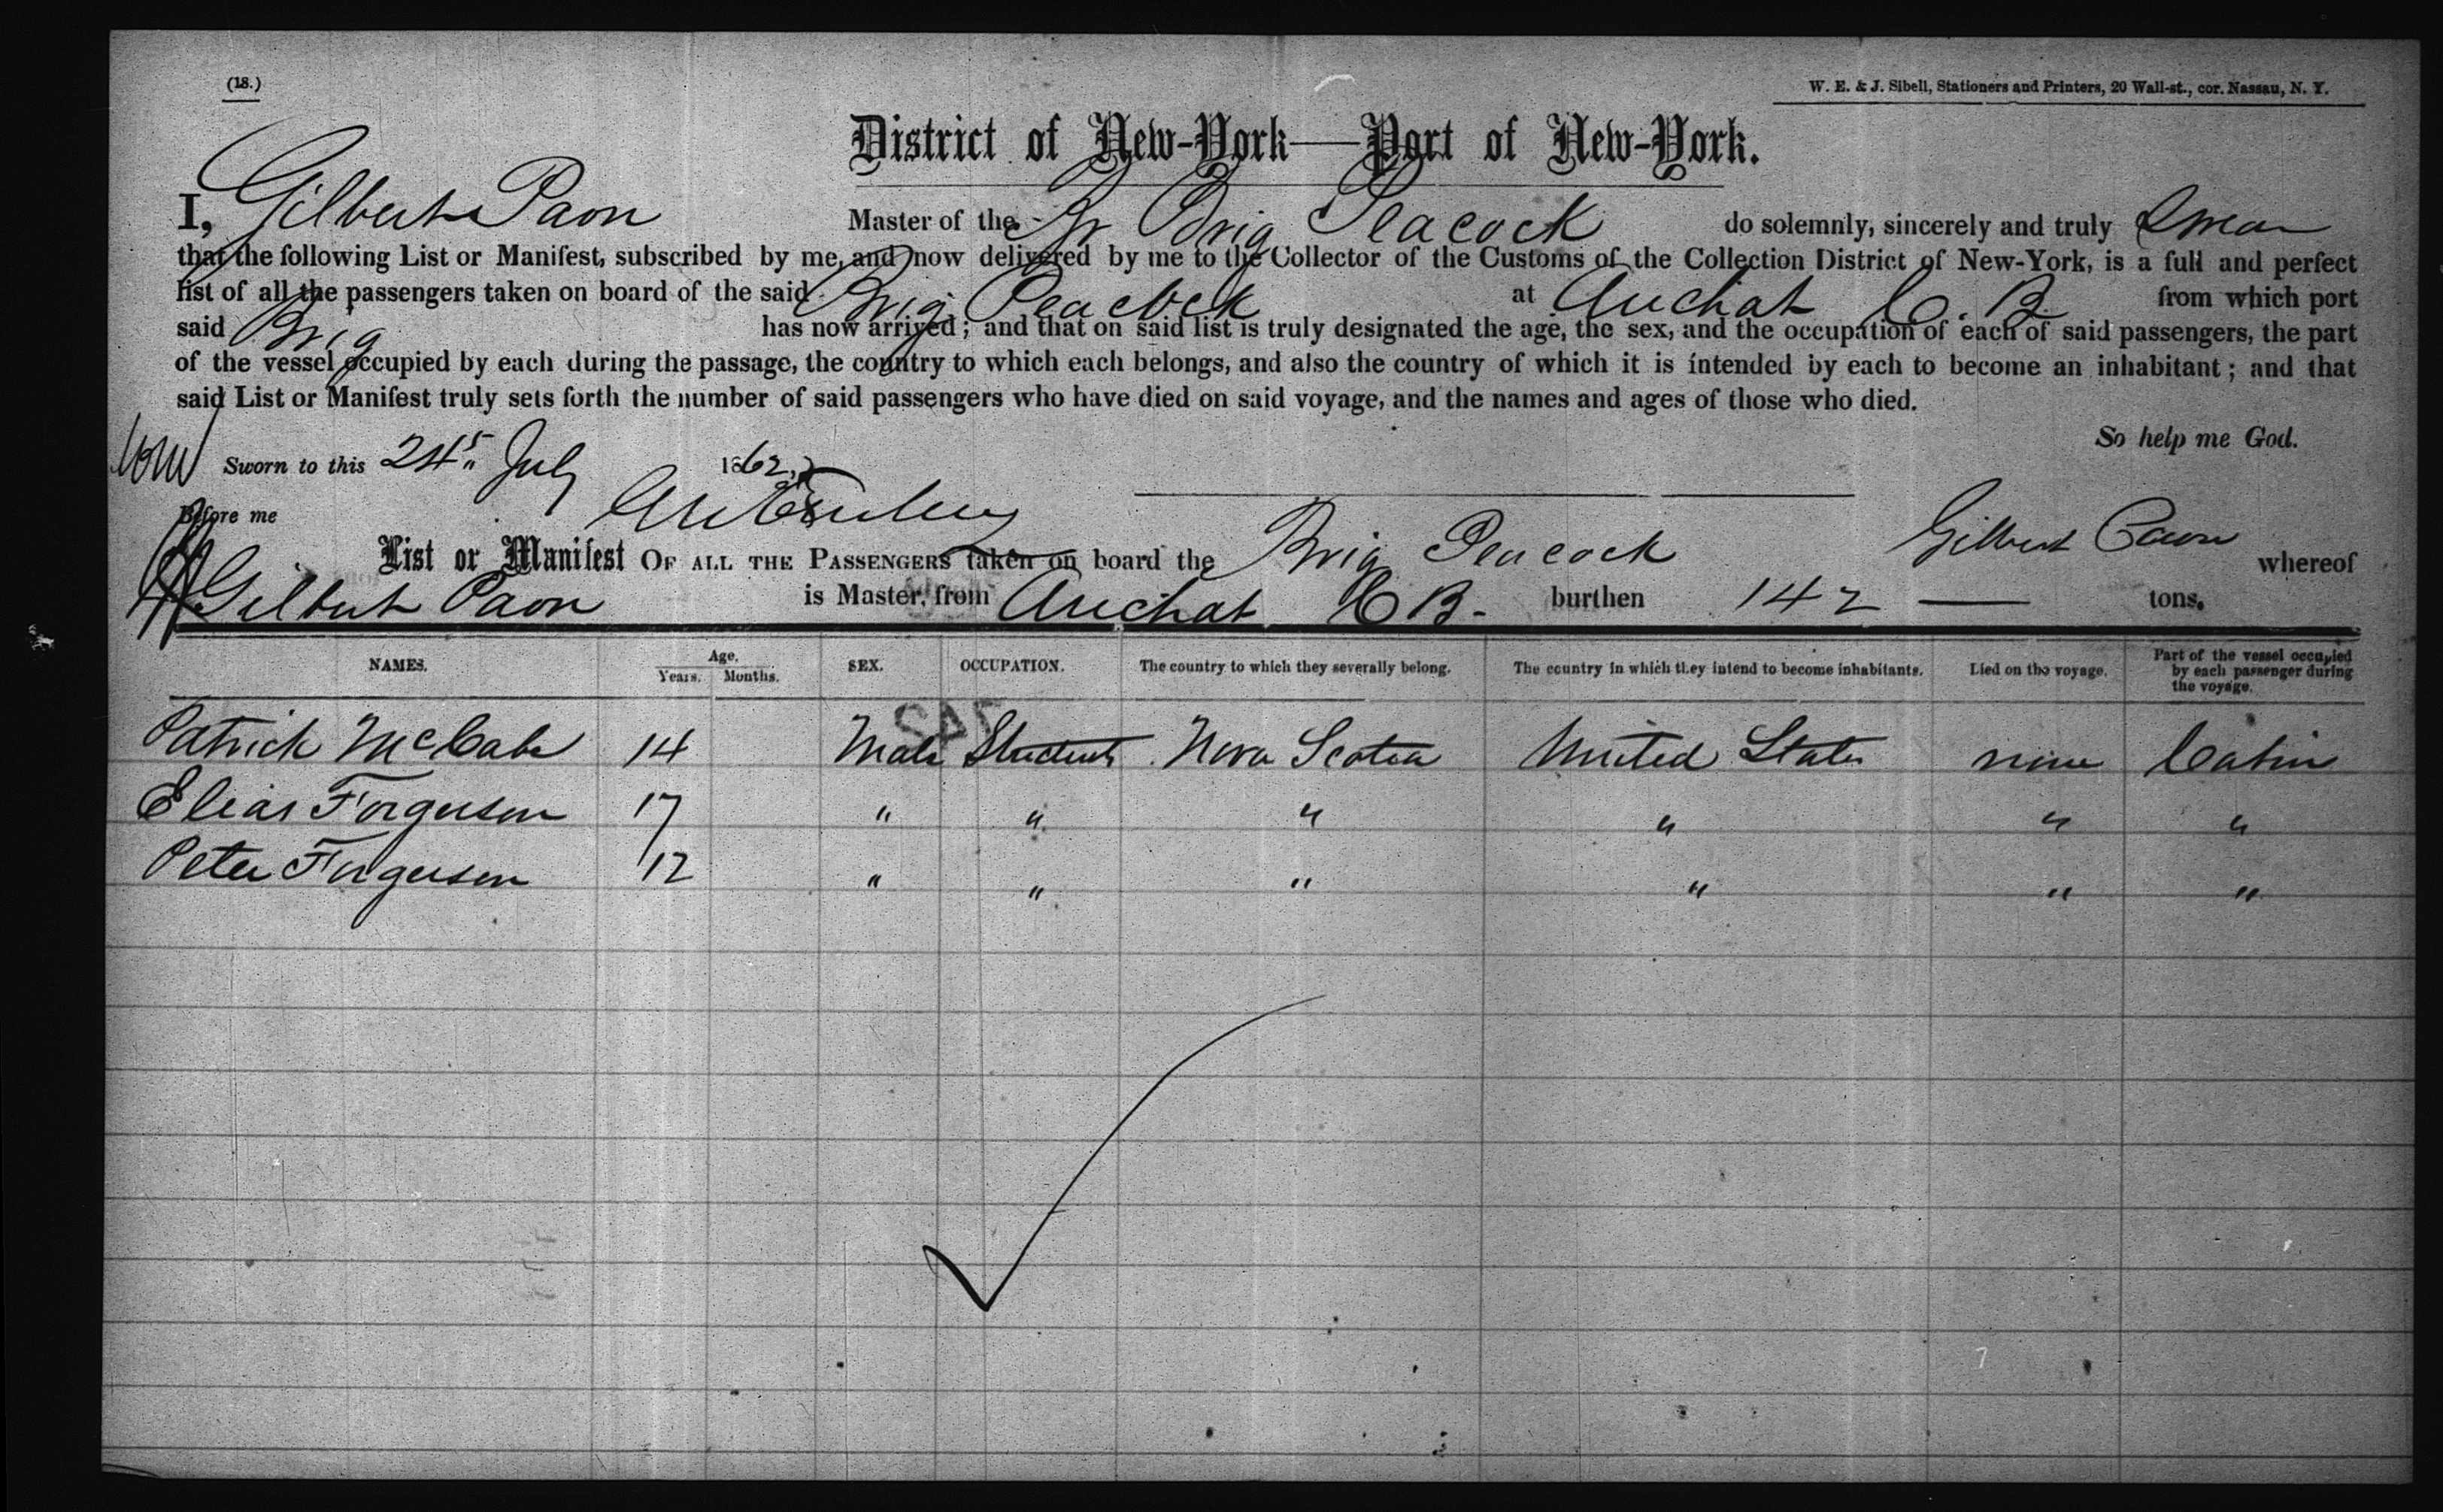 (18.)
W. E. & J. Sibell, Stationers and Printers, 20 Wall-st., cor. Nassau, N. Y.
District of New-York—Port of New-York.
I, Gilbert Paon Master of the Br Brig Peacock do solemnly, sincerely and truly Swear
that the following List or Manifest, subscribed by me, and now delivered by me to the Collector of the Customs of the Collection District of New-York, is a full and perfect
list of all the passengers taken on board of the said Brig Peacock at Arichat C. B. from which port
said Brig has now arrived; and that on said list is truly designated the age, the sex, and the occupation of each of said passengers, the part
of the vessel occupied by each during the passage, the country to which each belongs, and also the country of which it is intended by each to become an inhabitant; and that
said List or Manifest truly sets forth the number of said passengers who have died on said voyage, and the names and ages of those who died.
So help me God.
Sworn to this 24 July 1862
Before me
Gilbert Paon
List or Manifest OF ALL THE PASSENGERS taken on board the Brig Peacock whereof
Gilbert Paon is Master, from Arichat C B. burthen 142 — tons.
NAMES. Age. Years. Months. SEX. OCCUPATION. The country to which they severally belong. The country in which they intend to become inhabitants. Died on the voyage. Part of the vessel occupied by each passenger during the voyage.
Patrick McCabe 14 Male Student Nova Scotia United States none Cabin
Elias Forgerson 17 " " " " " "
Peter Forgerson 12 " " " " " "